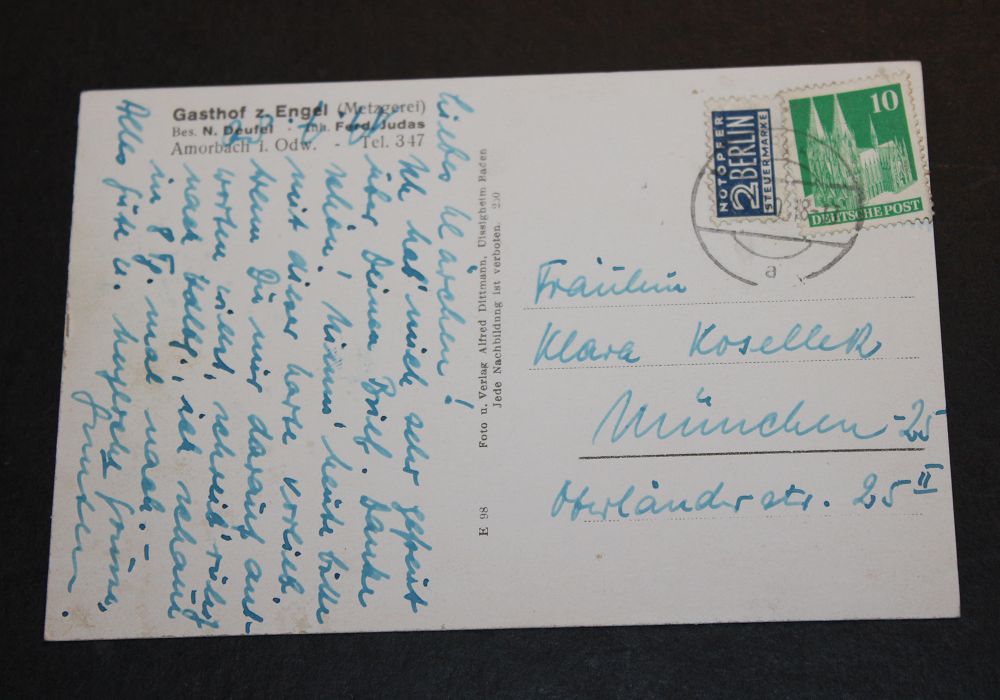 Gasthof z. Engel (Metzgerei)
Bes. N. Deufel - Inh. Ferd. Judas
Amorbach i. Odw. - Tel. 347
Liebes Klärchen!
Ich hab' mich sehr gefreut
über Deinen Brief. Danke
schön! Nimm' heute bitte
mit dieser Karte vorlieb.
Wenn Du mir darauf ant-
worten willst, schreib' ruhig
nach Hdlbg.; ich schaue
in 8 Tg. mal nach.
Alles Gute u. herzliche Grüsse,
E 98 Foto u. Verlag Alfred Dittmann, Uissigheim Baden
Jede Nachbildung ist verboten. 250
NOTOPFER
2 BERLIN
STEUERMARKE
10
DEUTSCHE POST
a
Fräulein
Klara Koselleck
München-25
Oberländerstr. 25 II